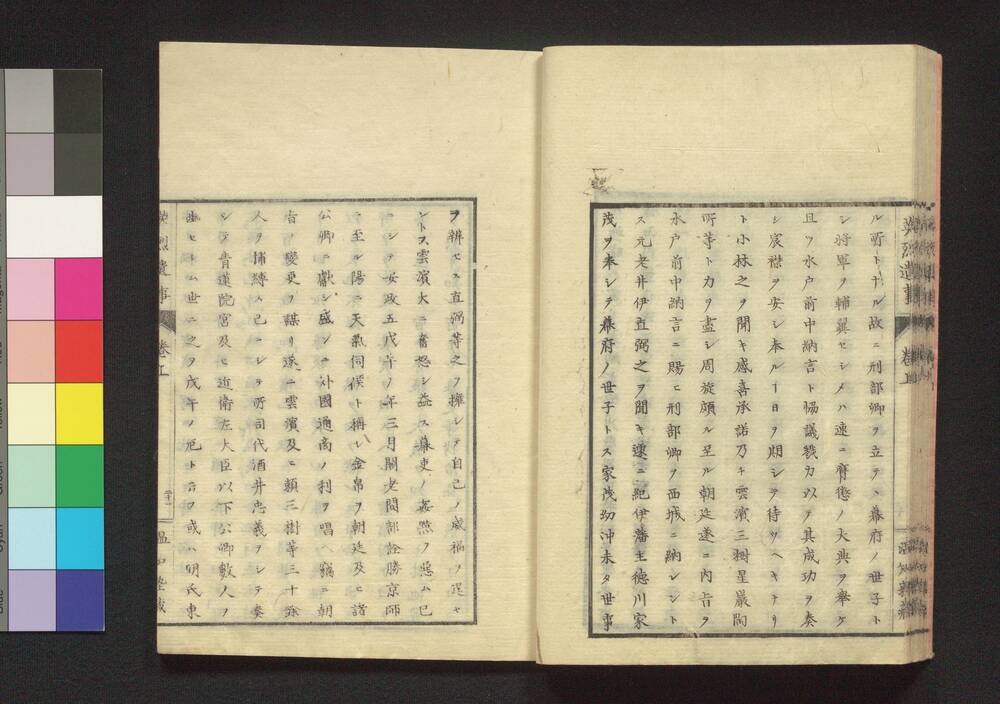 ル所トナル故ニ刑部卿ヲ立テヽ幕府ノ世子ト
シ将軍ヲ輔翼セシメハ速ニ膺懲ノ大典ヲ挙ケ
且ツ水戸前中納言ト協議戮力以テ其成功ヲ奏
シ宸襟ヲ安シ奉ルノ日ヲ期シテ待ツヘキナリ
ト小林之ヲ聞キ感喜承諾乃チ雲濱三樹星巖両
所等ト力ヲ盡シ周旋頗ル至ル朝廷遂ニ内旨ヲ
水戸前中納言ニ賜ヒ刑部卿ヲ西城ニ納レント
ス元老井伊直弼之ヲ聞キ遽ニ紀伊藩主徳川家
茂ヲ奉シテ幕府ノ世子トス家茂幼沖未タ世事
ヲ辨セス直弼等之ヲ擁シテ自己ノ威福ヲ逞セ
ントス雲濱大ニ奮怒シ益ス幕吏ノ姦黠ヲ惡ム已
ニシテ安政五戊午ノ年三月閣老間部詮勝京師
ニ至ル陽ニ天氣伺候ト稱シ金帛ヲ朝廷及ヒ諸
公卿ニ獻シ盛ンニ外國通商ノ利ヲ唱ヘ竊ニ朝
旨ノ變更ヲ謀リ遂ニ雲濱及ヒ頼三樹等三十餘
人ヲ捕縛ス已ニシテ所司代酒井忠義ヲシテ奏
シテ青蓮院宮及ヒ近衛左大臣以下公卿數人ヲ
幽セシム世ニ之ヲ戊午ノ厄ト云フ或ハ朝氏東